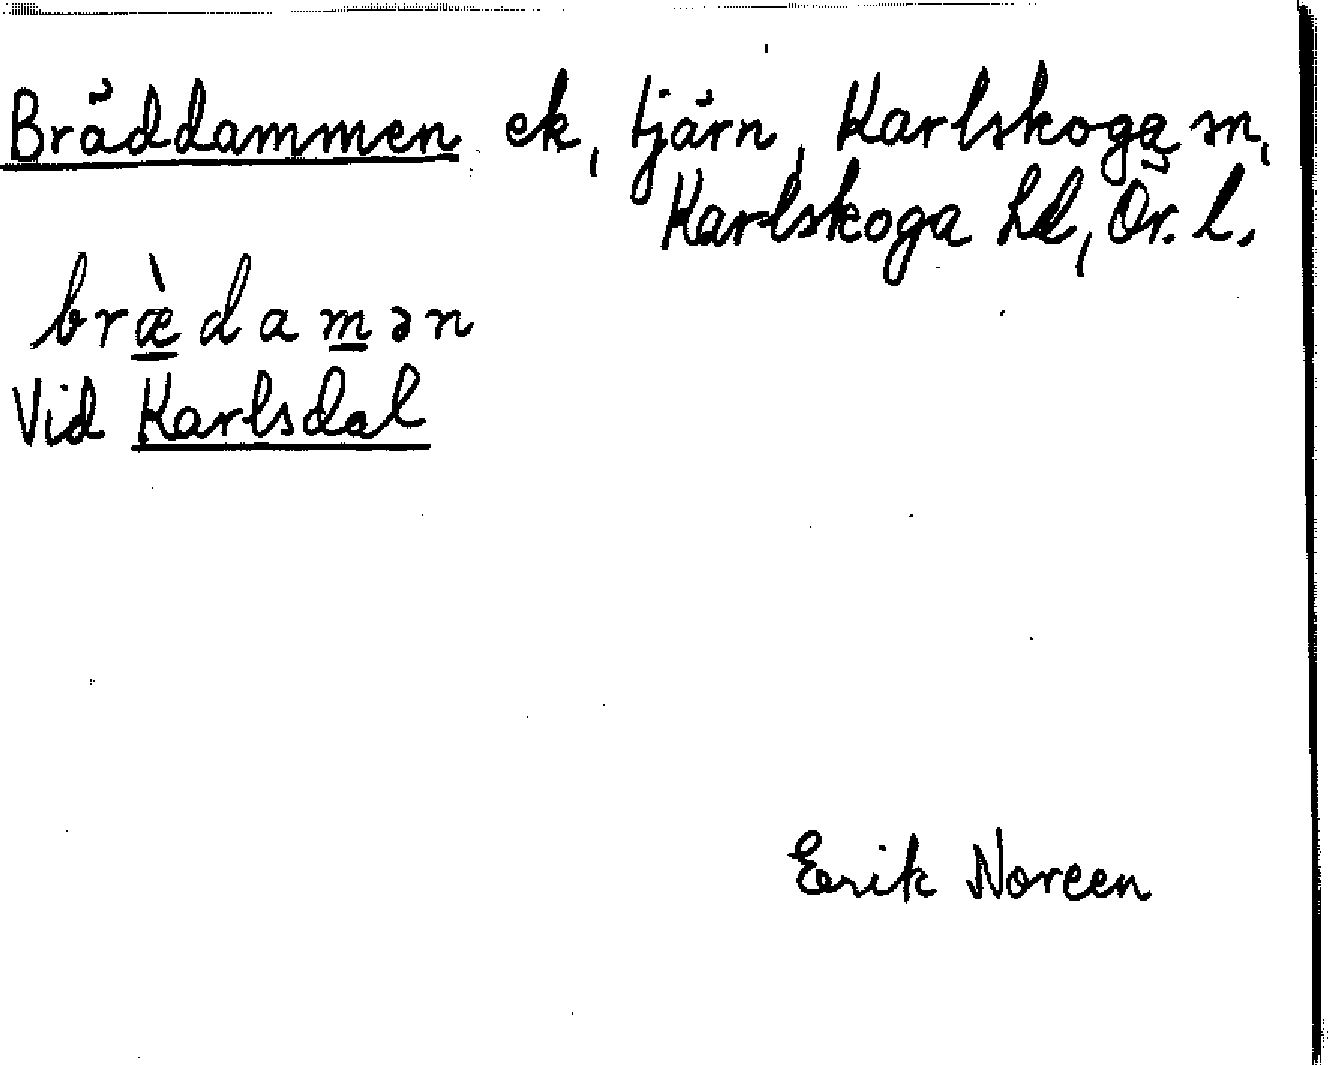 Bräddammen ek, tjärn, Karlskoga sn,
Karlskoga hd, Ör. l.
br&#230;̀damən
Vid Karlsdal
Erik Noreen